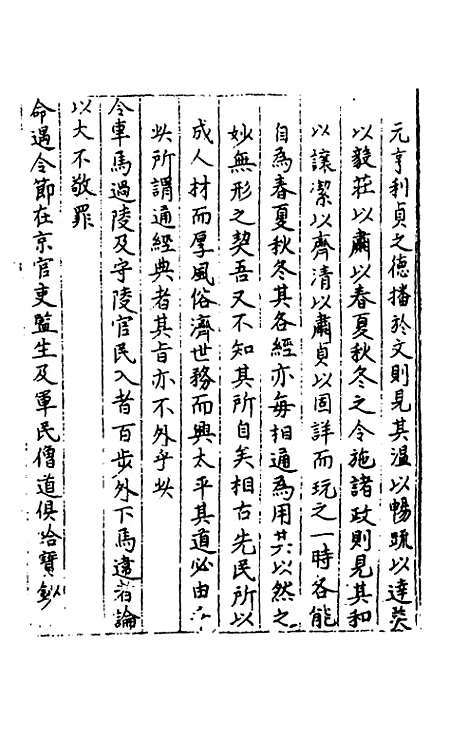 元亨利貞之德播於文則見其溫以暢疏以達英
以毅莊以肅以春夏秋冬之令施諸政則見其和
以讓潔以齊清以肅貞以固詳而玩之一時各能
自為春夏秋冬其各經亦每相通為用其以然之
妙無形之契吾又不知其所自矣相古先民所以
成人材而厚風俗濟世務而興太平其道必由
此所謂通經典者其旨亦不外乎此
令車馬過陵及守陵官民入者百步外下馬違者論
以大不敬罪
命遇令節在京官吏監生及軍民僧道俱給寶鈔